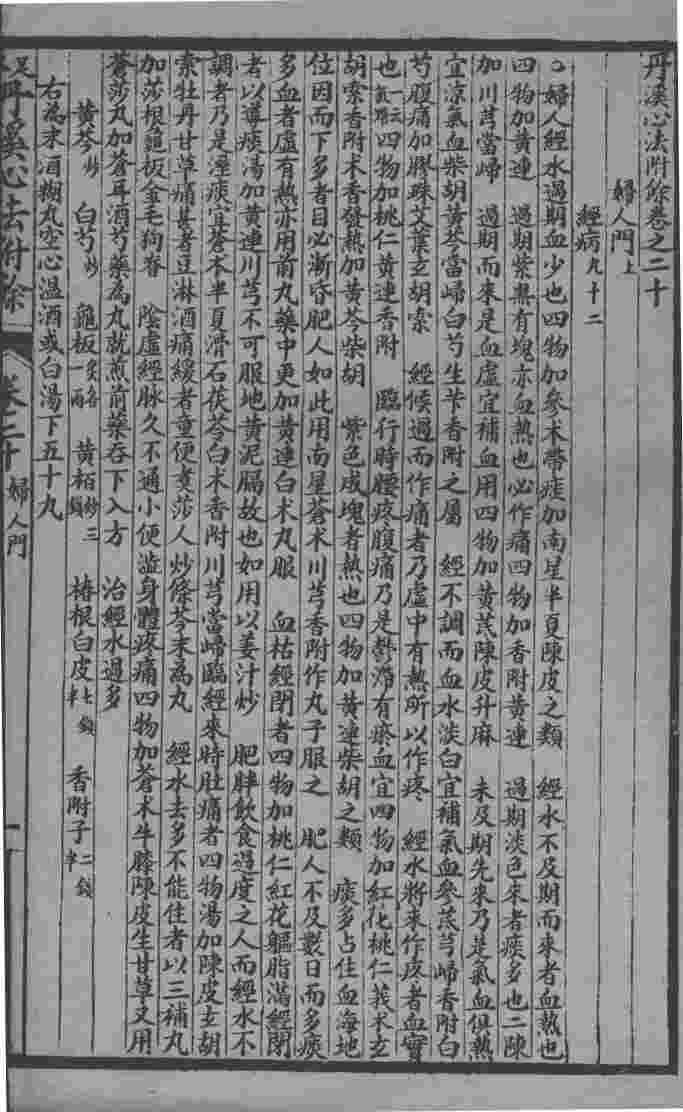 丹溪心法附餘卷之二十
婦人門上
經病九十二
婦人經水過期血少也四物加參术帶痰加南星半夏陳皮之類　經水不及期而來者血熱也
四物加黄連　過期紫黑有塊亦血熱也必作痛四物加香附黄連　過期淡色來者痰多也二陳
加川芎當歸　過期而來是血虛宜補血用四物加黄芪陳皮升麻　未及期先來乃是氣血俱熱
宜涼氣血柴胡黄芩當歸白芍生芐香附之屬　經不調而血水淡白宜補氣血參芪芎歸香附白
芍腹痛加膠珠艾葉玄胡索　經候過而作痛者乃虛中有熱所以作疼　經水將來作疼者血實
也一云氣滯四物加桃仁黄連香附　臨行時腰疼腹痛乃是鬱滯有瘀血宜四物加紅花桃仁莪术玄
胡索香附木香發熱加黄芩柴胡　紫色成塊者熱也四物加黄連柴胡之類　痰多占住血海地
位因而下多者目必漸昏肥人如此用南星蒼术川芎香附作丸子服之　肥人不及數日而多痰
多血者虛有熱亦用前丸藥中更加黄連白术丸服　血枯經閉者四物加桃仁紅花軀脂滿經閉
者以導痰湯加黄連川芎不可服地黄泥膈故也如用以姜汁炒　肥胖飲食過度之人而經水不
調者乃是溼痰宜蒼术半夏滑石茯苓白术香附川芎當歸臨經來時肚痛者四物湯加陳皮玄胡
索牡丹甘草痛甚者豆淋酒痛緩者童便煑莎入炒條芩末為丸　經水去多不能住者以三補丸
加莎根龜板金毛狗脊　陰虛經脉久不通小便澁身體疼痛四物加蒼术牛膝陳皮生甘草又用
蒼莎丸加蒼耳酒芍藥為丸就煎前藥吞下入方　治經水過多
黄芩炒　白芍炒　龜板炙各一兩　黄栢炒三錢　椿根白皮七錢半　香附子二錢半
右為末酒糊丸空心温酒或白湯下五十九
丹溪心法附餘　卷二十　婦人門　一